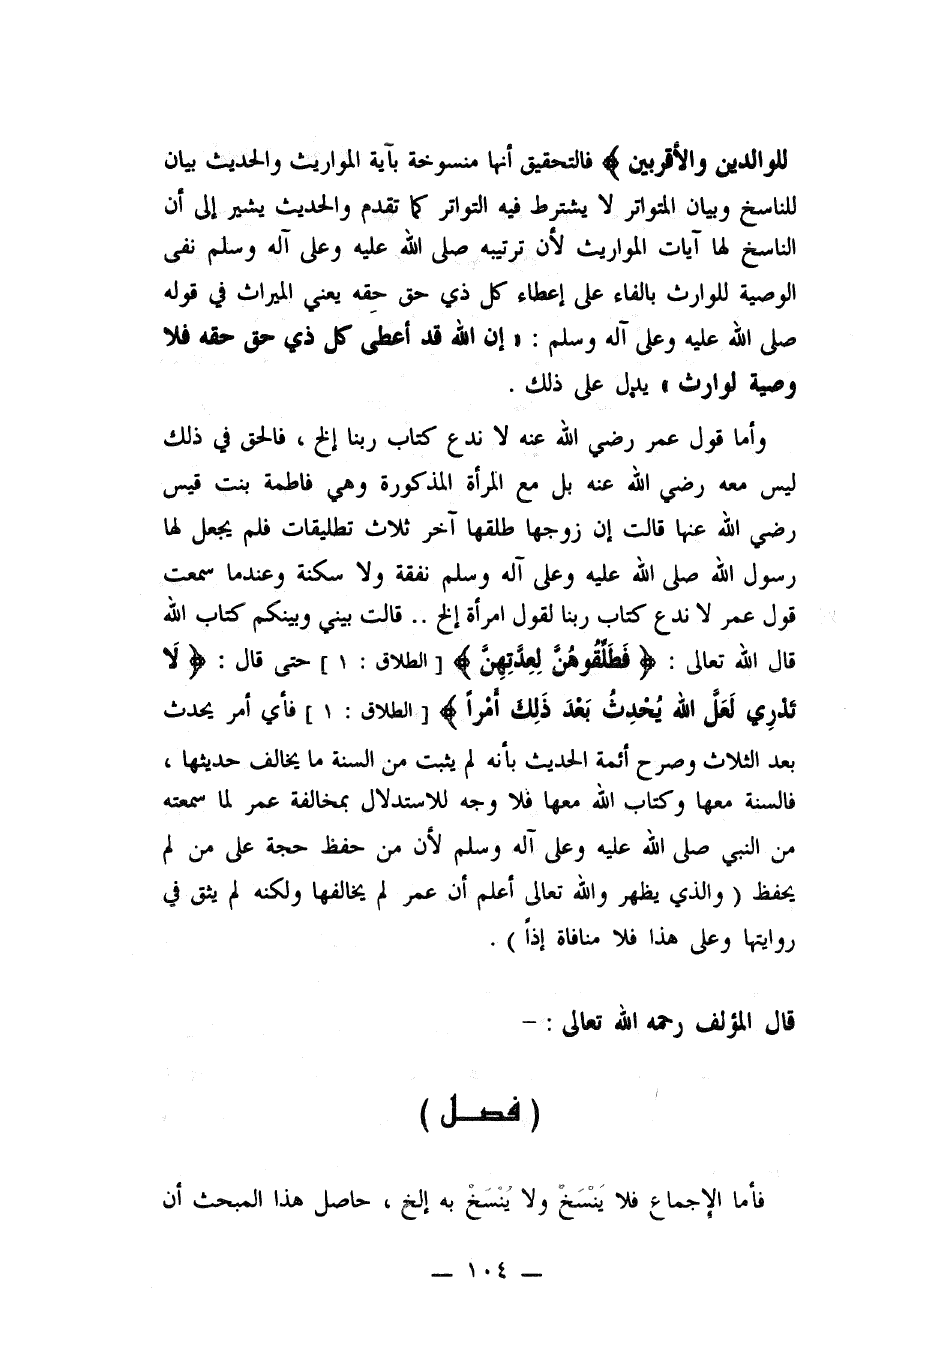 للوالدين والأقربين ﴾ فالتحقيق أنها منسوخة بآية المواريث والحديث بيان
للناسخ وبيان المتواتر لا يشترط فيه التواتر كما تقدم والحديث يشير إلى أن
الناسخ لها آيات المواريث لأن ترتيبه صلى الله عليه وعلى آله وسلم نفى
الوصية للوارث بالفاء على إعطاء كل ذي حق حقه يعني الميراث في قوله
صلى الله عليه وعلى آله وسلم : « إن الله قد أعطى كل ذي حق حقه فلا
وصية لوارث » يدل على ذلك .
وأما قول عمر رضي الله عنه لا ندع كتاب ربنا إلخ ، فالحق في ذلك
ليس معه رضي الله عنه بل مع المرأة المذكورة وهي فاطمة بنت قيس
رضي الله عنها قالت إن زوجها طلقها آخر ثلاث تطليقات فلم يجعل لها
رسول الله صلى الله عليه وعلى آله وسلم نفقة ولا سكنة وعندما سمعت
قول عمر لا ندع كتاب ربنا لقول امرأة إلخ .. قالت بيني وبينكم كتاب الله
قال الله تعالى : ﴿ فَطَلِّقُوهُنَّ لِعِدَّتِهِنَّ ﴾ [ الطلاق : ١ ] حتى قال : ﴿ لَا
تَدْرِي لَعَلَّ اللهَ يُحْدِثُ بَعْدَ ذَلِكَ أَمْراً ﴾ [ الطلاق : ١ ] فأي أمر يحدث
بعد الثلاث وصرح أئمة الحديث بأنه لم يثبت من السنة ما يخالف حديثها ،
فالسنة معها وكتاب الله معها فلا وجه للاستدلال بمخالفة عمر لما سمعته
من النبي صلى الله عليه وعلى آله وسلم لأن من حفظ حجة على من لم
يحفظ ( والذي يظهر والله تعالى أعلم أن عمر لم يخالفها ولكنه لم يثق في
روايتها وعلى هذا فلا منافاة إذاً ) .
قال المؤلف رحمه الله تعالى : –
( فصـــل )
فأما الإجماع فلا يَنْسَخْ ولا يُنْسَخْ به إلخ ، حاصل هذا المبحث أن
— ١٠٤ —